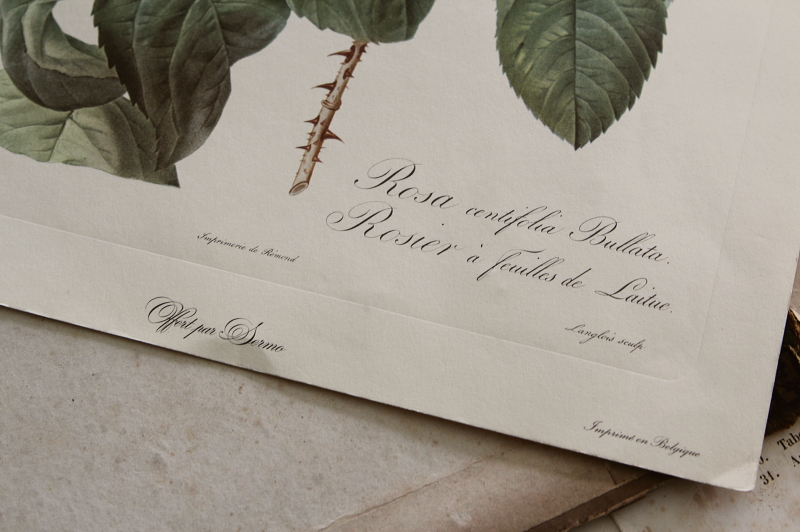 Rosa centifolia Bullata.
Rosier à feuilles de Laitue.
Imprimerie de Rémond
Langlois sculp.
Offert par Sermo
Imprimé en Belgique
31.